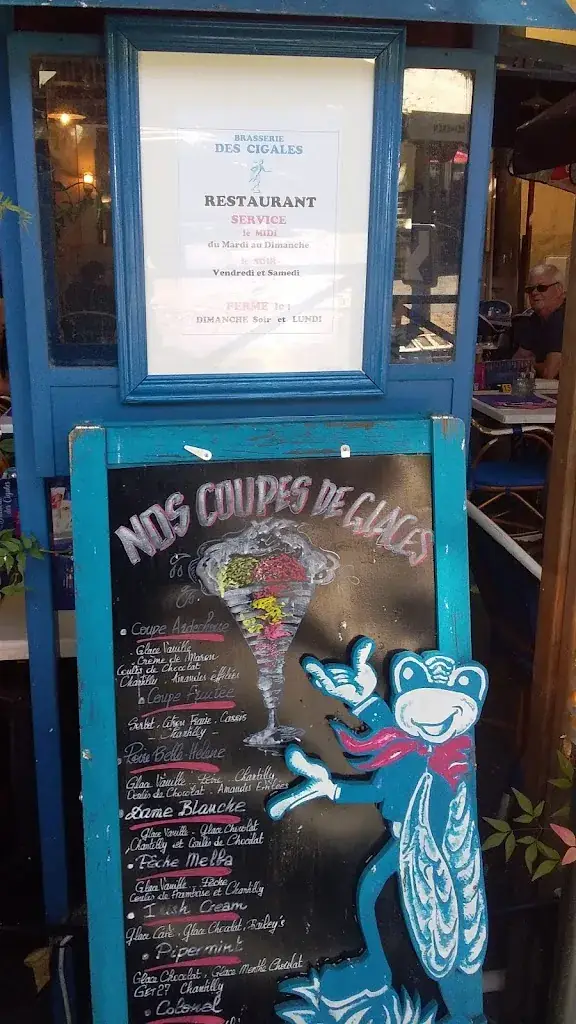 BRASSERIE
DES CIGALES
RESTAURANT
SERVICE
le MIDI
du Mardi au Dimanche
le SOIR
Vendredi et Samedi
FERME le :
DIMANCHE Soir et LUNDI
NOS COUPES DE GLACES
Coupe Ardéchoise
Glace Vanille
Crème de Maron
Coulis de Chocolat
Chantilly . Amandes effilées
Coupe Fruitée
Sorbet . Citron Fraise . Cassis
Chantilly
Poire Belle Hélène
Glace Vanille . Poire . Chantilly
Coulis de Chocolat . Amandes Effilées
Dame Blanche
Glace Vanille . Glace Chocolat
Chantilly et Coulis de Chocolat
Pêche Melba
Glace Vanille . Pêche
Coulis de Framboise et Chantilly
Irish Cream
Glace Café . Glace Chocolat . Bailey's
Pipermint
Glace Chocolat , Glace Menthe Chocolat
Get 27 Chantilly
Colonel